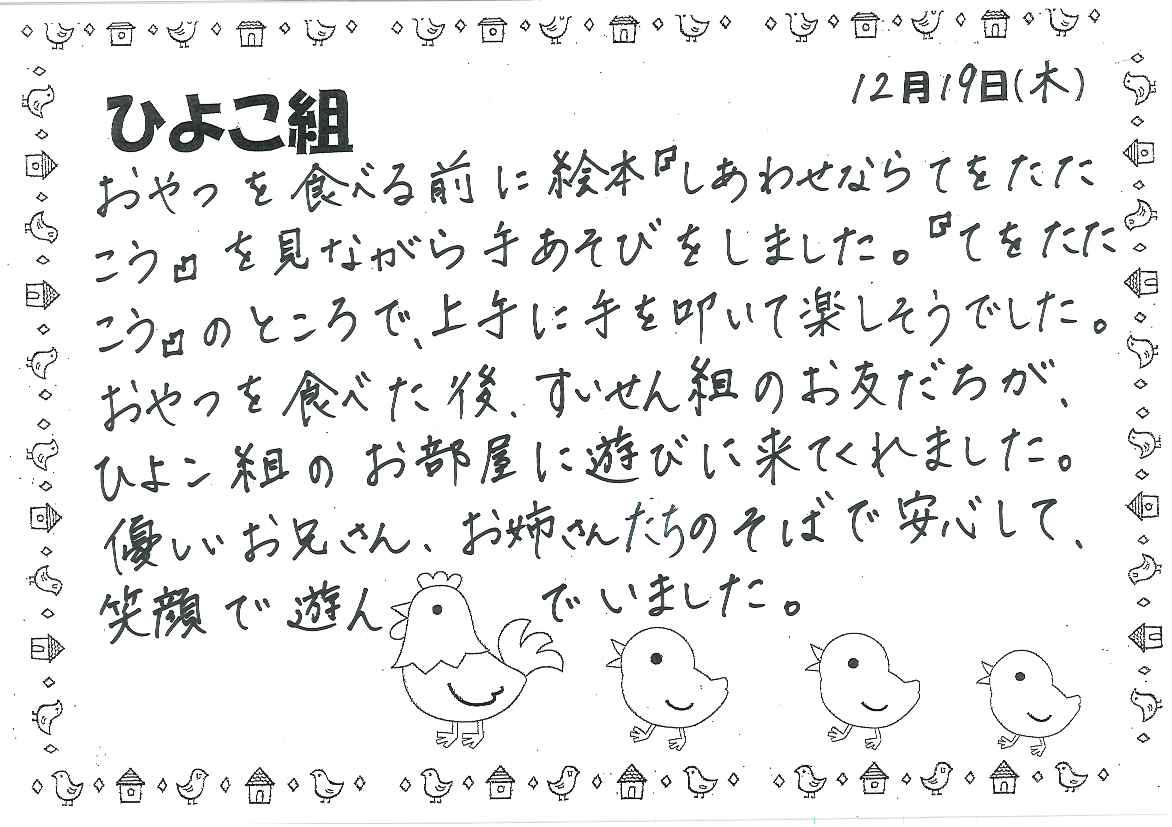 12月19日(木)
ひよこ組
おやつを食べる前に絵本『しあわせならてをたた
こう』を見ながら手あそびをしました。『てをたた
こう』のところで、上手に手を叩いて楽しそうでした。
おやつを食べた後、すいせん組のお友だちが、
ひよこ組のお部屋に遊びに来てくれました。
優しいお兄さん、お姉さんたちのそばで安心して、
笑顔で遊んでいました。